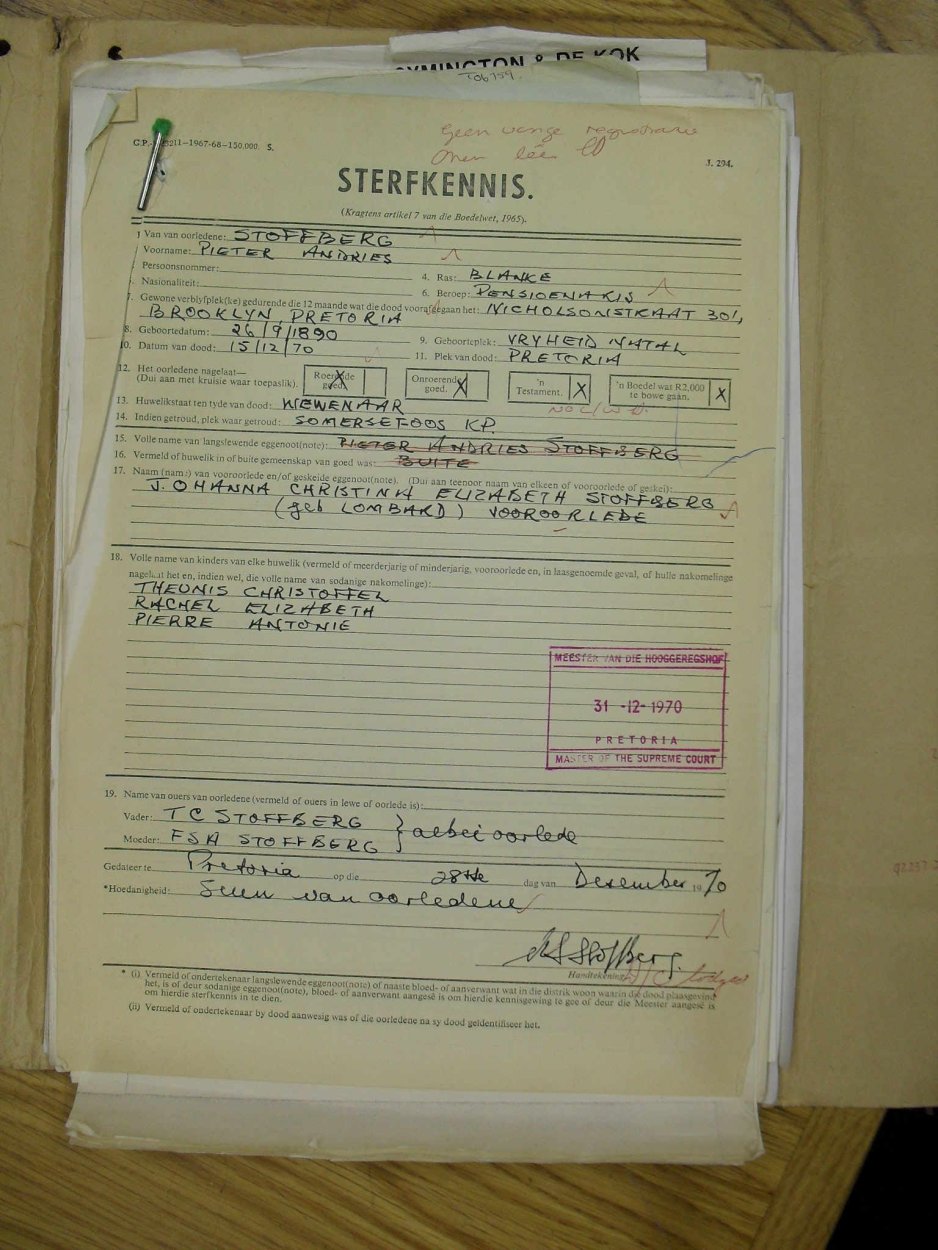 SYMINGTON & DE KOK
T06759
Geen vorige registrasie
G.P.-S. 211-1967-68-150.000. S.
J. 294.
STERFKENNIS.
(Kragtens artikel 7 van die Boedelwet, 1965).
1 Van van oorledene: STOFFBERG
Voorname: PIETER ANDRIES
Persoonsnommer:
4. Ras: BLANKE
Nasionaliteit:
6. Beroep: PENSIOENARIS
7. Gewone verblyfplek(ke) gedurende die 12 maande wat die dood voorafgegaan het: NICHOLSONSTRAAT 301,
BROOKLYN, PRETORIA
8. Geboortedatum: 26/9/1890
9. Geboorteplek: VRYHEID NATAL
10. Datum van dood: 15/12/70
11. Plek van dood: PRETORIA
12. Het oorledene nagelaat—
(Dui aan met kruisie waar toepaslik).
Roerende goed. X
Onroerende goed. X
'n Testament. X
'n Boedel wat R2,000 te bowe gaan. X
13. Huwelikstaat ten tyde van dood: WEWENAAR
14. Indien getroud, plek waar getroud: SOMERSET-OOS KP.
15. Volle name van langslewende eggenoot(note): PIETER ANDRIES STOFFBERG
16. Vermeld of huwelik in of buite gemeenskap van goed was: BUITE
17. Naam (name) van vooroorlede en/of geskeide eggenoot(note). (Dui teenoor naam van elkeen of vooroorlede of geskei):
JOHANNA CHRISTINA ELIZABETH STOFFBERG
(geb LOMBARD) VOOROORLEDE
18. Volle name van kinders van elke huwelik (vermeld of meerderjarig of minderjarig, vooroorlede en, in laasgenoemde geval, of hulle nakomelinge
nagelaat het en, indien wel, die volle name van sodanige nakomelinge):
THEUNIS CHRISTOFFEL
RACHEL ELIZABETH
PIERRE ANTONIE
MEESTER VAN DIE HOOGGEREGSHOF
31 -12- 1970
PRETORIA
MASTER OF THE SUPREME COURT
19. Name van ouers van oorledene (vermeld of ouers in lewe of oorlede is):
Vader: T C STOFFBERG
Moeder: F S A STOFFBERG } albei oorlede
Gedateer te Pretoria op die 28ste dag van Desember 1970
*Hoedanigheid: Seun van oorledene
Handtekening
* (i) Vermeld of ondertekenaar langslewende eggenoot(note) of naaste bloed- of aanverwant wat in die distrik woon waarin die dood plaasgevind
het, is of deur sodanige eggenoot(note), bloed- of aanverwant aangesê is om hierdie kennisgewing te gee of deur die Meester aangesê is
om hierdie sterfkennis in te dien.
(ii) Vermeld of ondertekenaar by dood aanwesig was of die oorledene na sy dood geïdentifiseer het.